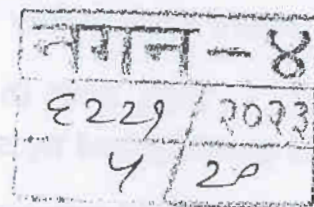 नमान - ४
६२२१ / २०२३
५ / २९